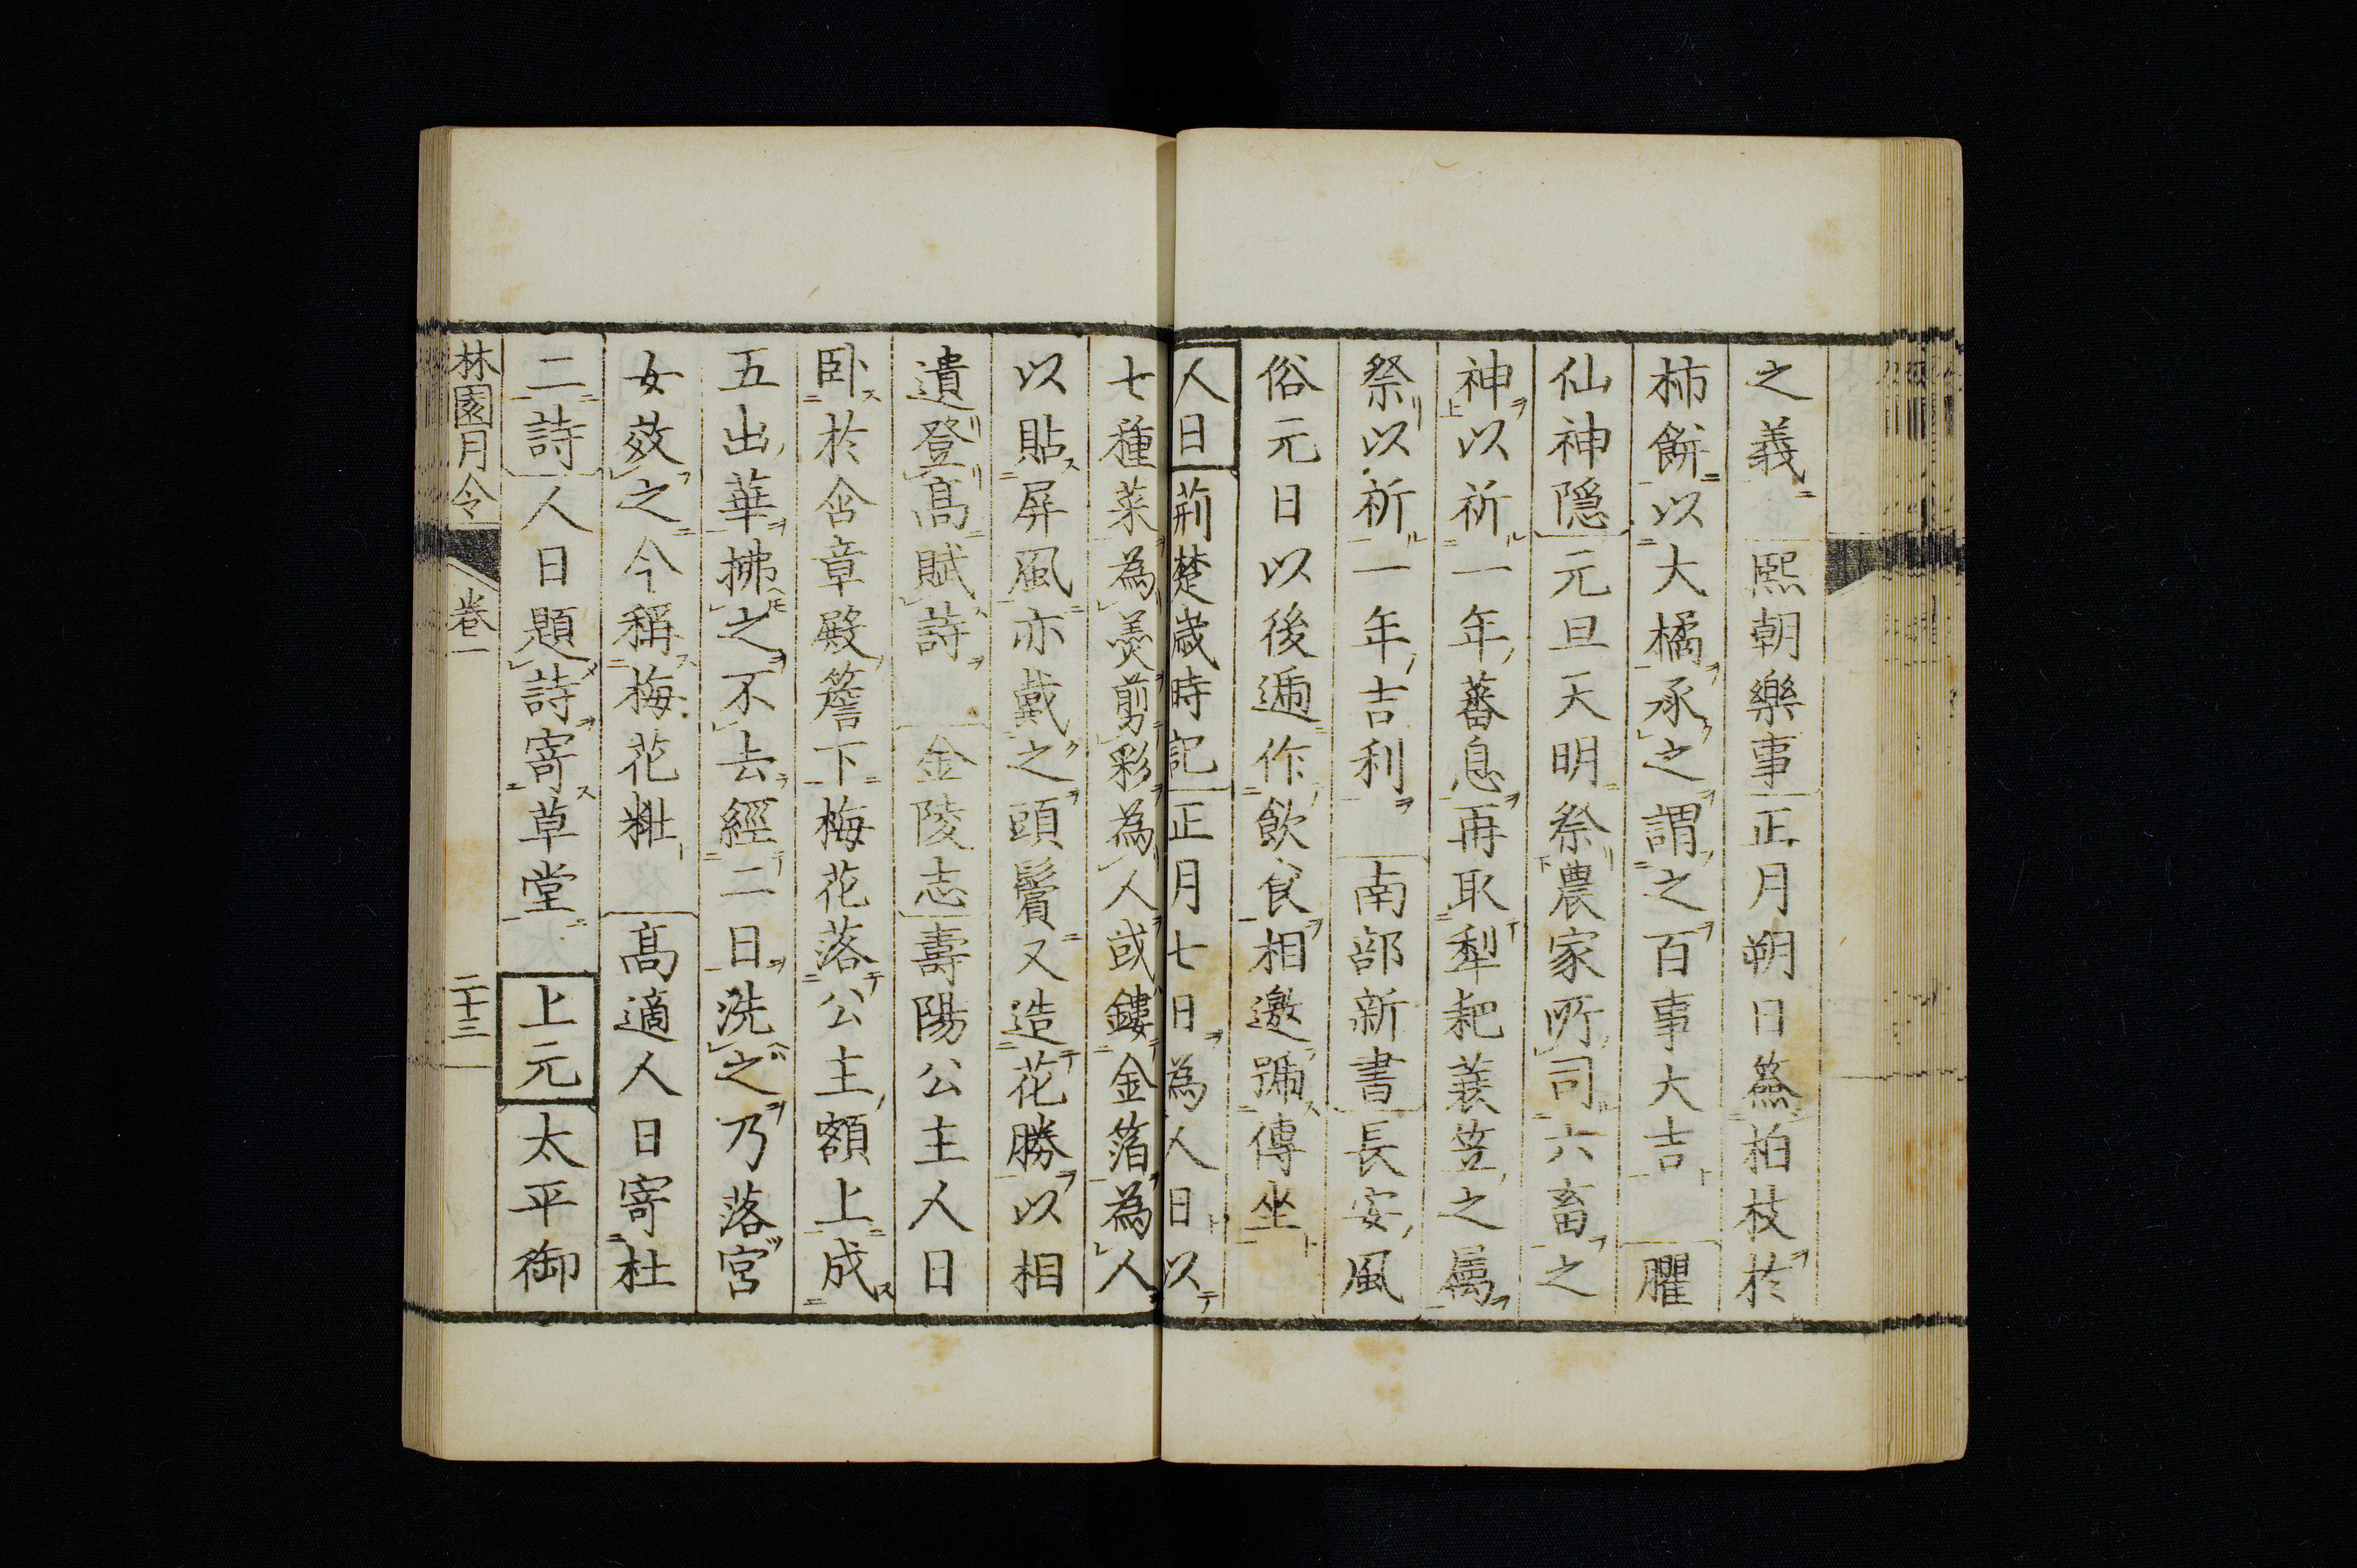 之義熙朝樂事正月朔日簽柏枝於
柿餅以大橘承之謂之百事大吉臞
仙神隱元旦天明祭農家所司六畜之
神以祈一年蕃息再取犁耙蓑笠之屬
祭以祈一年吉利南部新書長安風
俗元日以後遞作飲食相邀號傳坐
人日荊楚歲時記正月七日為人日以
七種菜為羹剪彩為人或鏤金箔為人
以貼屏風亦戴之頭鬢又造花勝以相
遺登高賦詩金陵志壽陽公主人日
臥於含章殿簷下梅花落公主額上成
五出華拂之不去經二日洗之乃落宮
女效之今稱梅花粧高適人日寄杜
二詩人日題詩寄草堂上元太平御
林園月令 卷一 二十三